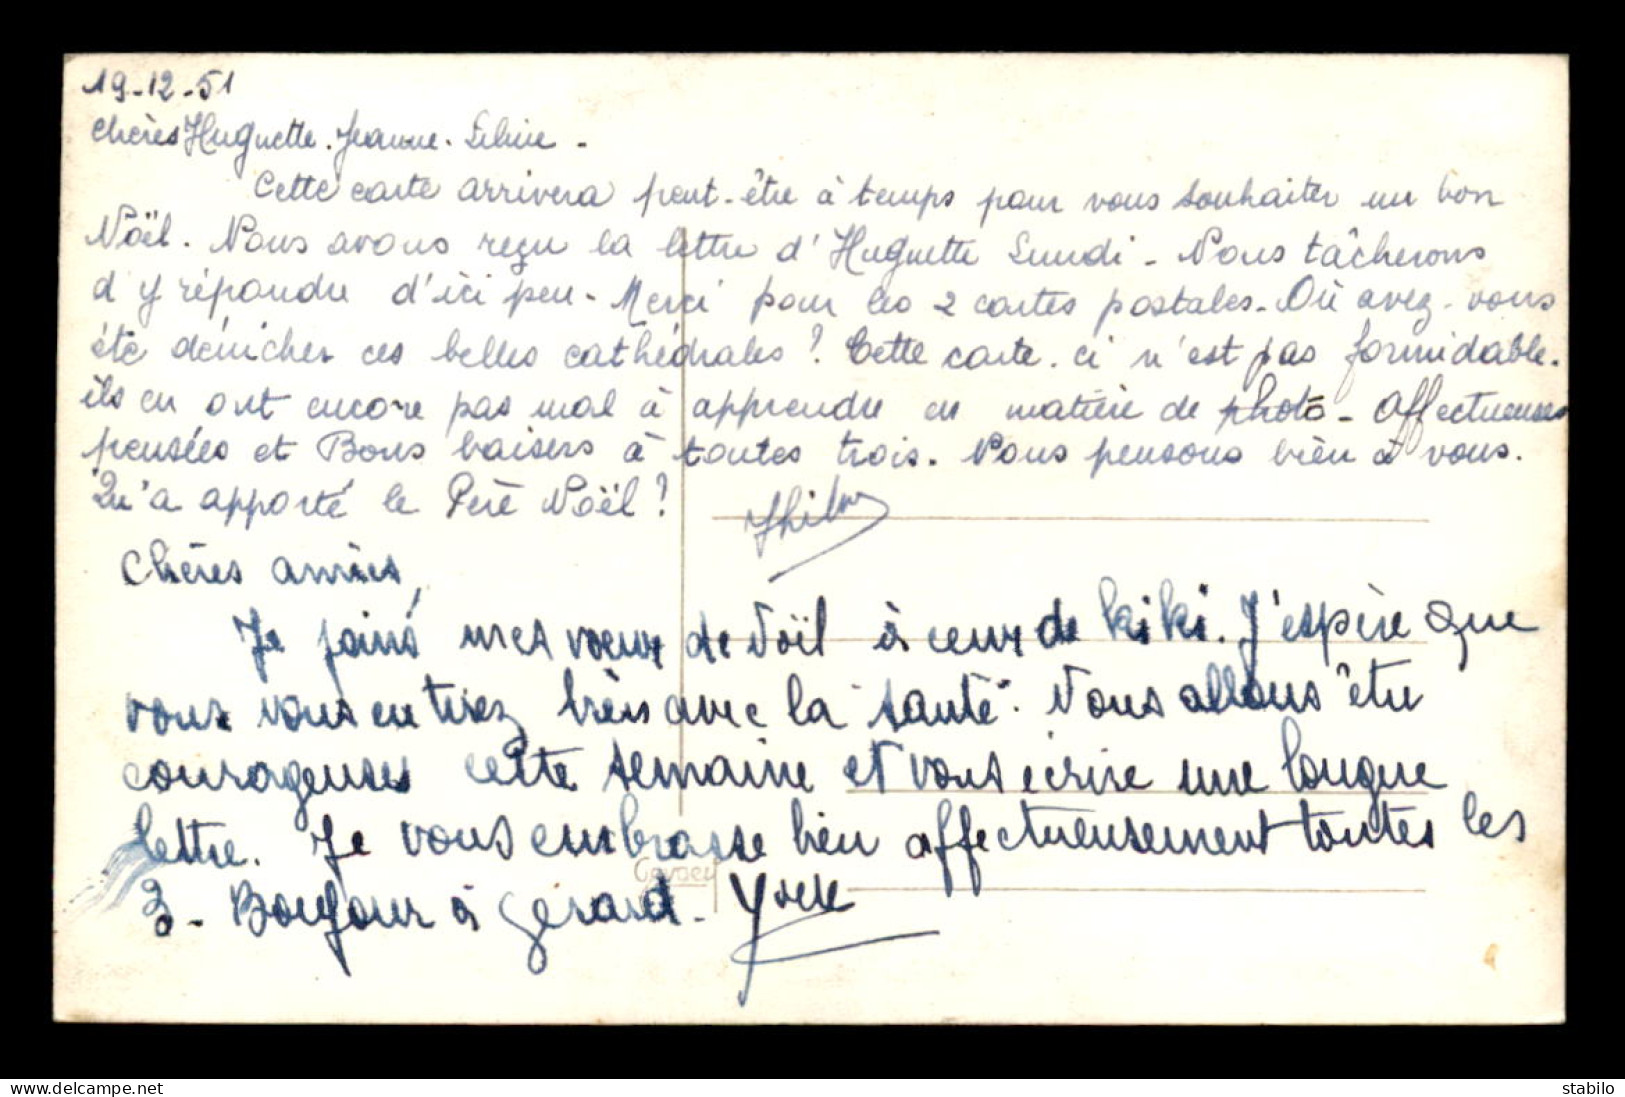 19-12-51
Chères Huguette. Jeanne.
Cette carte arrivera peut-être à temps pour vous souhaiter un bon
Noël. Nous avons reçu la lettre d'Huguette Lundi - Nous tâcherons
d'y répondre d'ici peu - Merci pour les 2 cartes postales - Où avez-vous
été dénicher ces belles cathédrales ? Cette carte-ci n'est pas formidable.
ils en ont encore pas mal à apprendre en matière de photo - Affectueuses
pensées et Bons baisers à toutes trois. Nous pensons bien à vous.
Qu'a apporté le Père Noël ?
Chères amies,
Je joins mes voeux de Noël à ceux de Kiki. J'espère que
vous vous en tirez bien avec la santé. Nous allons être
courageuses cette semaine et vous écrire une longue
lettre. Je vous embrasse bien affectueusement toutes les
3 - Bonjour à Gérard -
Gevaert
delcampe.net
stabilo